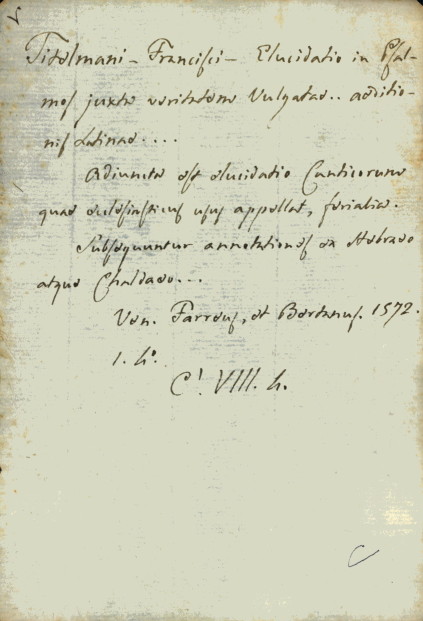 Titelmani - Francisci - Elucidatio in Psal-
mos juxta veritatem Vulgatae.. aeditio-
nis Latinae....
Adiuncta est elucidatio Canticorum
quae ecclesiasticus usus appellat, ferialia.
Subsequuntur annotationes ex Hebraeo
atque Chaldaeo...
Ven. Farreus, et Bertanus. 1572.
1. 4°.
C! VIII. 4.